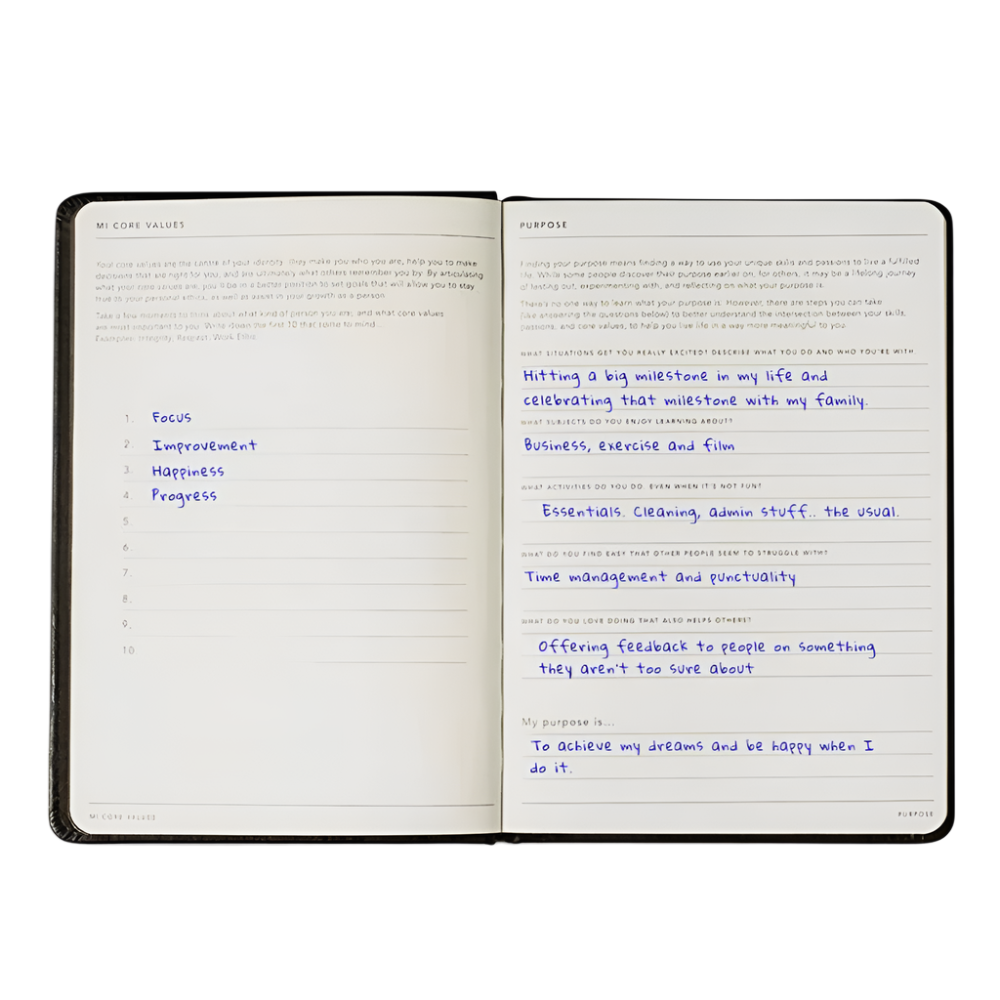 MI CORE VALUES
Your core values are the centre of your identity: they make you who you are, help you to make
decisions that are right for you, and are ultimately what others remember you by. By articulating
what your core values are, you'll be in a better position to set goals that will allow you to stay
true to your personal ethics, as well as assist in your growth as a person.
Take a few moments to think about what kind of person you are, and what core values
are most important to you. Write down the first 10 that come to mind...
Examples: Integrity, Respect, Work Ethic
1. Focus
2. Improvement
3. Happiness
4. Progress
5.
6.
7.
8.
9.
10
MI CORE VALUES
PURPOSE
Finding your purpose means finding a way to use your unique skills and passions to live a fulfilled
life. While some people discover their purpose earlier on, for others, it may be a lifelong journey
of testing out, experimenting with, and reflecting on what your purpose is.
There's no one way to learn what your purpose is. However, there are steps you can take
(like answering the questions below) to better understand the intersection between your skills,
passions, and core values, to help you live life in a way more meaningful to you.
WHAT SITUATIONS GET YOU REALLY EXCITED? DESCRIBE WHAT YOU DO AND WHO YOU'RE WITH
Hitting a big milestone in my life and
celebrating that milestone with my family.
WHAT SUBJECTS DO YOU ENJOY LEARNING ABOUT?
Business, exercise and film
WHAT ACTIVITIES DO YOU DO, EVEN WHEN IT'S NOT FUN?
Essentials. Cleaning, admin stuff.. the usual.
WHAT DO YOU FIND EASY THAT OTHER PEOPLE SEEM TO STRUGGLE WITH?
Time management and punctuality
WHAT DO YOU LOVE DOING THAT ALSO HELPS OTHERS?
Offering feedback to people on something
they aren't too sure about
My purpose is...
To achieve my dreams and be happy when I
do it.
PURPOSE